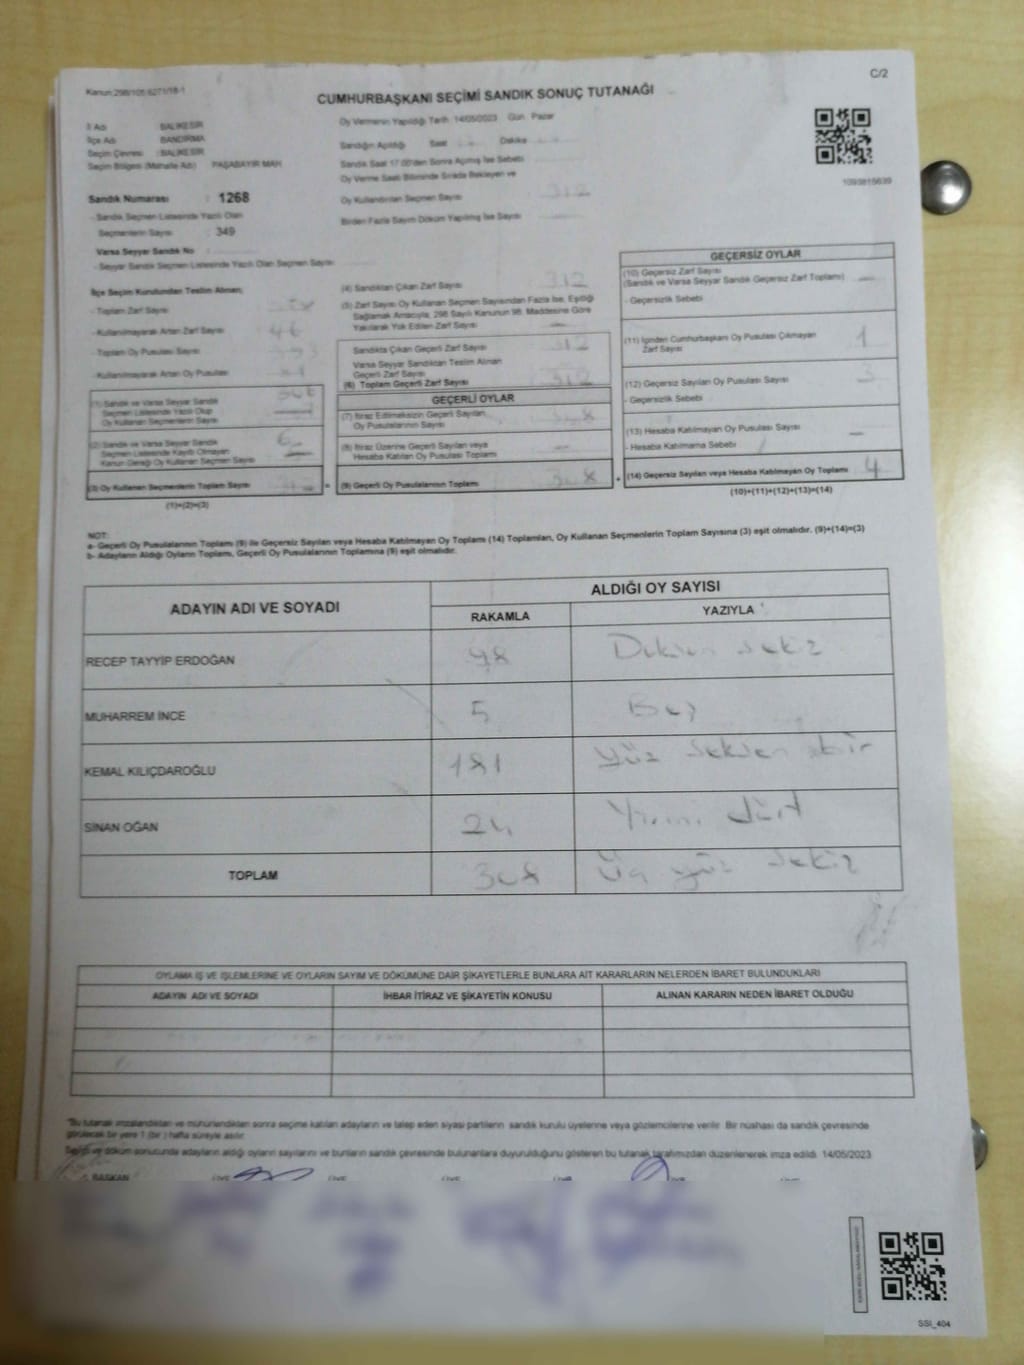 C/2
Kanun:298/105 6271/18-1
CUMHURBAŞKANI SEÇİMİ SANDIK SONUÇ TUTANAĞI
İl Adı : BALIKESİR
İlçe Adı : BANDIRMA
Seçim Çevresi : BALIKESİR
Seçim Bölgesi (Mahalle Adı) : PAŞABAYIR MAH
Sandık Numarası : 1268
- Sandık Seçmen Listesinde Yazılı Olan
Seçmenlerin Sayısı : 349
Varsa Seyyar Sandık No :
- Seyyar Sandık Seçmen Listesinde Yazılı Olan Seçmen Sayısı
Oy Vermenin Yapıldığı Tarih 14/05/2023 Gün Pazar
Sandığın Açıldığı Saat Dakika
Sandık Saat 17.00'den Sonra Açılmış İse Sebebi
Oy Verme Saati Bitiminde Sırada Bekleyen ve
Oy Kullandırılan Seçmen Sayısı 312
Birden Fazla Sayım Döküm Yapılmış İse Sayısı
1093815639
İlçe Seçim Kurulundan Teslim Alınan;
- Toplam Zarf Sayısı
- Kullanılmayarak Artan Zarf Sayısı 46
- Toplam Oy Pusulası Sayısı
- Kullanılmayarak Artan Oy Pusulası
(1) Sandık ve Varsa Seyyar Sandık
Seçmen Listesinde Yazılı Olup
Oy Kullanan Seçmenlerin Sayısı
(2) Sandık ve Varsa Seyyar Sandık
Seçmen Listesinde Kayıtlı Olmayan
Kanun Gereği Oy Kullanan Seçmen Sayısı 6
(3) Oy Kullanan Seçmenlerin Toplam Sayısı
(1)+(2)=(3)
(4) Sandıktan Çıkan Zarf Sayısı 312
(5) Zarf Sayısı Oy Kullanan Seçmen Sayısından Fazla İse, Eşitliği
Sağlamak Amacıyla, 298 Sayılı Kanunun 98. Maddesine Göre
Yakılarak Yok Edilen Zarf Sayısı —
Sandıkta Çıkan Geçerli Zarf Sayısı 312
Varsa Seyyar Sandıktan Teslim Alınan
Geçerli Zarf Sayısı
(6) Toplam Geçerli Zarf Sayısı 312
GEÇERLİ OYLAR
(7) İtiraz Edilmeksizin Geçerli Sayılan
Oy Pusulalarının Sayısı 308
(8) İtiraz Üzerine Geçerli Sayılan veya
Hesaba Katılan Oy Pusulası Toplamı —
(9) Geçerli Oy Pusulalarının Toplamı 308
GEÇERSİZ OYLAR
(10) Geçersiz Zarf Sayısı
(Sandık ve Varsa Seyyar Sandık Geçersiz Zarf Toplamı) —
- Geçersizlik Sebebi
(11) İçinden Cumhurbaşkanı Oy Pusulası Çıkmayan
Zarf Sayısı 1
(12) Geçersiz Sayılan Oy Pusulası Sayısı 3
- Geçersizlik Sebebi
(13) Hesaba Katılmayan Oy Pusulası Sayısı —
- Hesaba Katılmama Sebebi
(14) Geçersiz Sayılan veya Hesaba Katılmayan Oy Toplamı 4
(10)+(11)+(12)+(13)=(14)
NOT:
a- Geçerli Oy Pusulalarının Toplamı (9) ile Geçersiz Sayılan veya Hesaba Katılmayan Oy Toplamı (14) Toplamları, Oy Kullanan Seçmenlerin Toplam Sayısına (3) eşit olmalıdır. (9)+(14)=(3)
b- Adayların Aldığı Oyların Toplamı, Geçerli Oy Pusulalarının Toplamına (9) eşit olmalıdır.
ADAYIN ADI VE SOYADI ALDIĞI OY SAYISI
RAKAMLA YAZIYLA
RECEP TAYYİP ERDOĞAN 98 Doksan sekiz
MUHARREM İNCE 5 Beş
KEMAL KILIÇDAROĞLU 181 yüz seksen bir
SİNAN OĞAN 24 Yirmi dört
TOPLAM 308 Üç yüz sekiz
OYLAMA İŞ VE İŞLEMLERİNE VE OYLARIN SAYIM VE DÖKÜMÜNE DAİR ŞİKAYETLERLE BUNLARA AİT KARARLARIN NELERDEN İBARET BULUNDUKLARI
ADAYIN ADI VE SOYADI İHBAR İTİRAZ VE ŞİKAYETİN KONUSU ALINAN KARARIN NEDEN İBARET OLDUĞU
"Bu tutanak imzalandıktan ve mühürlendikten sonra seçime katılan adayların ve talep eden siyasi partilerin sandık kurulu üyelerine veya gözlemcilerine verilir. Bir nüshası da sandık çevresinde
görülecek bir yere 1 (bir ) hafta süreyle asılır.
Sayım ve döküm sonucunda adayların aldığı oyların sayılarını ve bunların sandık çevresinde bulunanlara duyurulduğunu gösteren bu tutanak tarafımızdan düzenlenerek imza edildi. 14/05/2023
BAŞKAN ÜYE ÜYE ÜYE ÜYE ÜYE ÜYE
SSİ_404